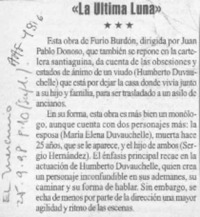 «La Ultima Luna»
★ ★ ★
Esta obra de Furio Burdón, dirigida por Juan
Pablo Donoso, que también se repone en la carte-
lera santiaguina, da cuenta de las obsesiones y
estados de ánimo de un viudo (Humberto Duvau-
chelle) que está por dejar la casa donde vivía junto
a su hijo y familia, para ser trasladado a un asilo de
ancianos.
En su forma, esta obra es más bien un monólo-
go, aunque cuenta con dos personajes más: la
esposa (María Elena Duvauchelle), muerta hace
25 años, que se le aparece, y el hijo de ambos (Ser-
gio Hernández). El énfasis principal recae en la
actuación de Humberto Duvauchelle, quien crea
un personaje inconfundible en sus ademanes, su
caminar y su forma de hablar. Sin embargo, se
echa de menos por parte de la dirección una mayor
agilidad y ritmo de las escenas.
EL Mercurio
25-9-98 P.10